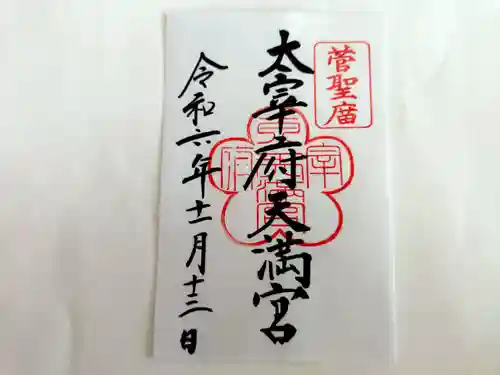 菅聖廟
太宰府天満宮
令和六年十一月十三日